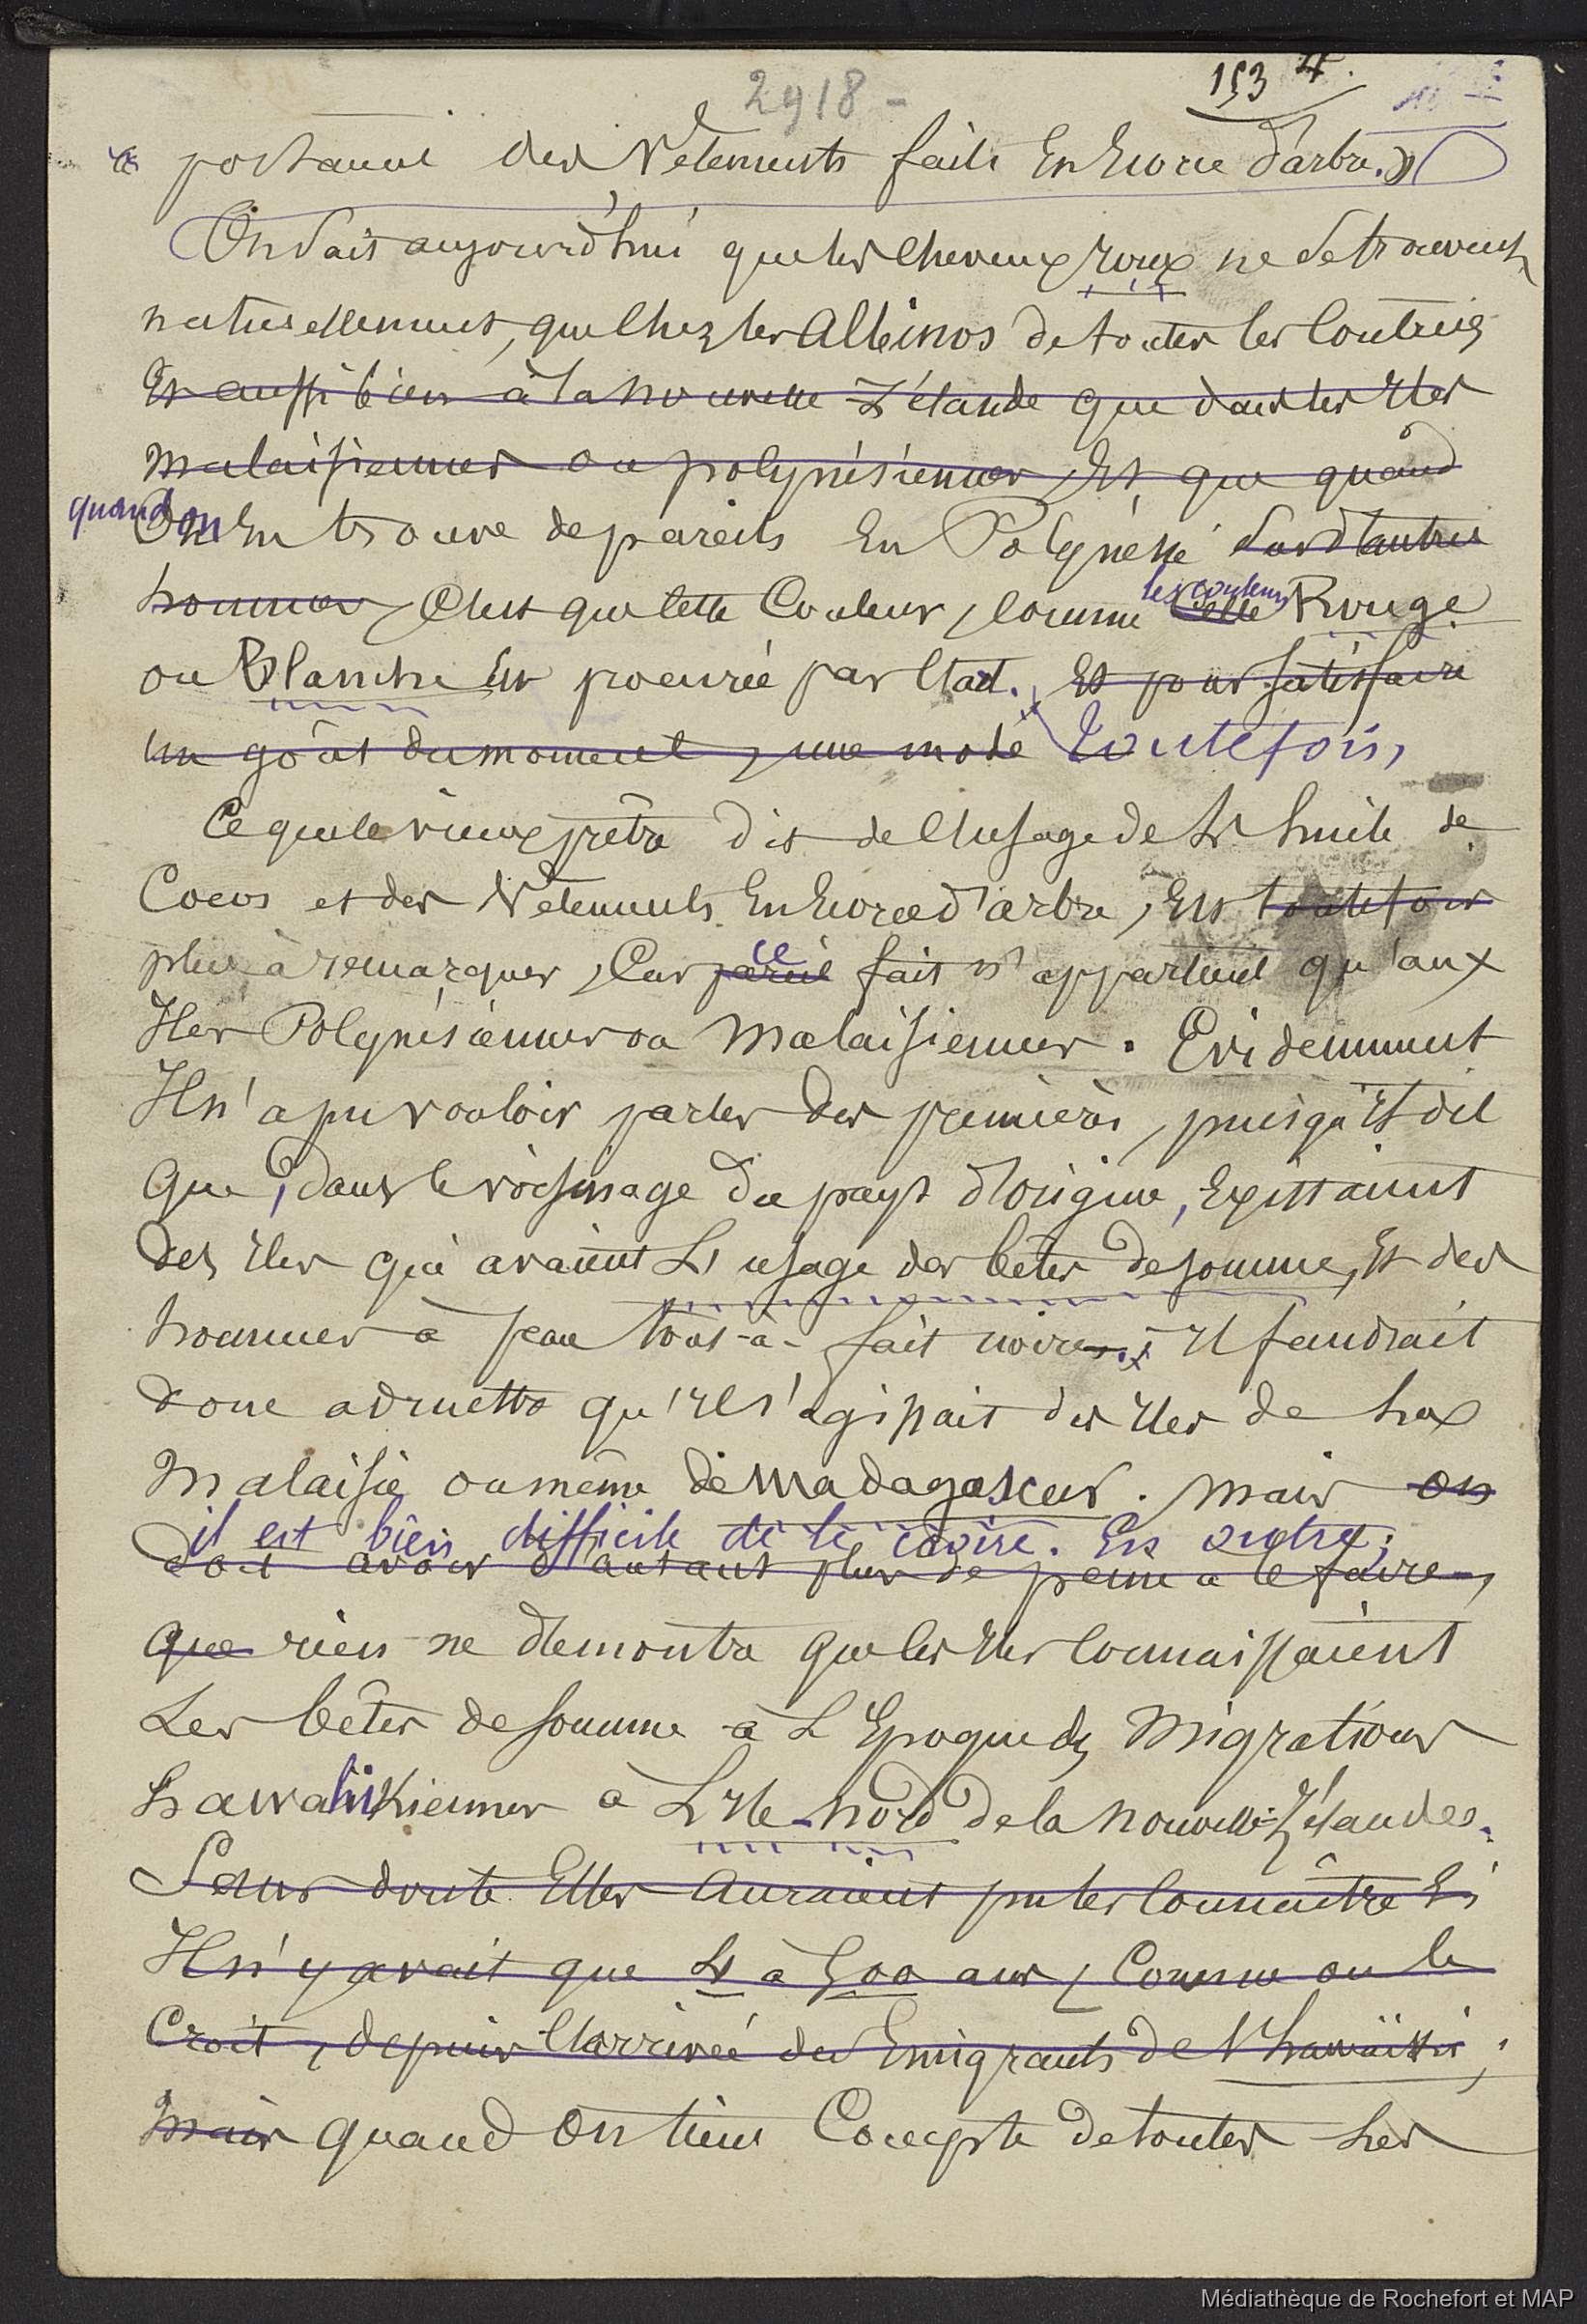 2918 -
153 4.
« portaient des Vêtements faits En Ecorce d'arbre. »
On Sait aujourd'hui que les Cheveux roux ne Se trouvent
naturellement, que Chez les Albinos de toutes les Contrées
Et aussi bien à la Nouvelle Zélande que dans les Iles
Malaisiennes ou polynésiennes, Et que quand
quand on
On En trouve de pareils En Polynésie Sur d'autres
les couleurs
hommes, C'est que Cette Couleur, Comme Celle Rouge
ou Blanche Est procurée par l'art. Et pour Satisfaire
un goût du moment, une mode Toutefois,
Ce que le vieux prêtre dit de l'Usage de L'huile de
Cocos et des Vêtements En Ecorce d'arbre, Est toutefois
ce
plus à remarquer, Car pareil fait n'appartient qu'aux
Iles Polynésiennes ou Malaisiennes. Evidemment
Il n'a pu vouloir parler des premières, puisqu'Il dit
que, dans le voisinage du pays d'origine, Existaient
des Iles qui avaient L'usage des bêtes de somme, Et des
hommes à peau tout-à-fait noire. Il faudrait
donc admettre qu'Il s'agissait des Iles de La
Malaisie ou même de Madagascar. Mais on
il est bien difficile de le croire. En outre,
doit avoir d'autant plus de peine à le faire,
que rien ne démontre que les Iles Connaissaient
Les bêtes de Somme à L'Epoque des Migrations
hawahikiennes à L'Ile-Nord de la Nouvelle-Zélande.
Sans doute Elles Auraient pu les Connaître Si
Il n'y avait que 4 à 500 ans, Comme on le
Croit, depuis l'arrivée des Emigrants de l'hawaïki ;
Mais quand On tient Compte de toutes Les
Médiathèque de Rochefort et MAP